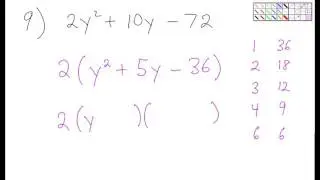 9) 2y² + 10y - 72
2(y² + 5y - 36)
2(y )( )
1 36
2 18
3 12
4 9
6 6